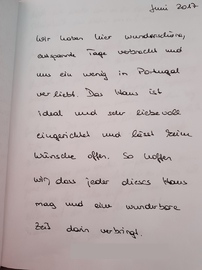 Juni 2017
Wir haben hier wunderschöne,
entspannte Tage verbracht und
uns ein wenig in Portugal
verliebt. Das Haus ist
ideal und sehr liebevoll
eingerichtet und lässt keine
Wünsche offen. So hoffen
wir, dass jeder dieses Haus
mag und eine wunderbare
Zeit darin verbringt.